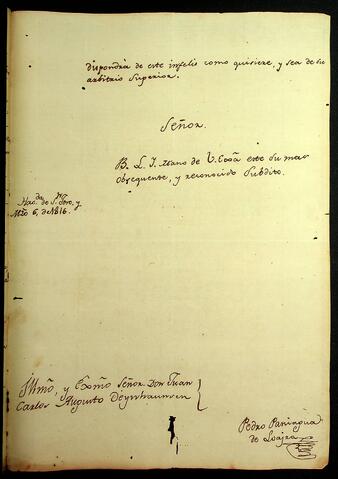 dispondrá de este infelis como quisiere, y sea de su
arbitrio Superior.
Señor.
B. L. I. Mano de V. Exâ este su mas
obsequente, y reconocido Subdito.
Hacda. de Sn. Ysro, y
Mzo 6, de 1816.
Yllmô, y Exmô Señor Don Juan
Carlos Augusto Deynhaussen
Pedro Paniagua
de Loajza